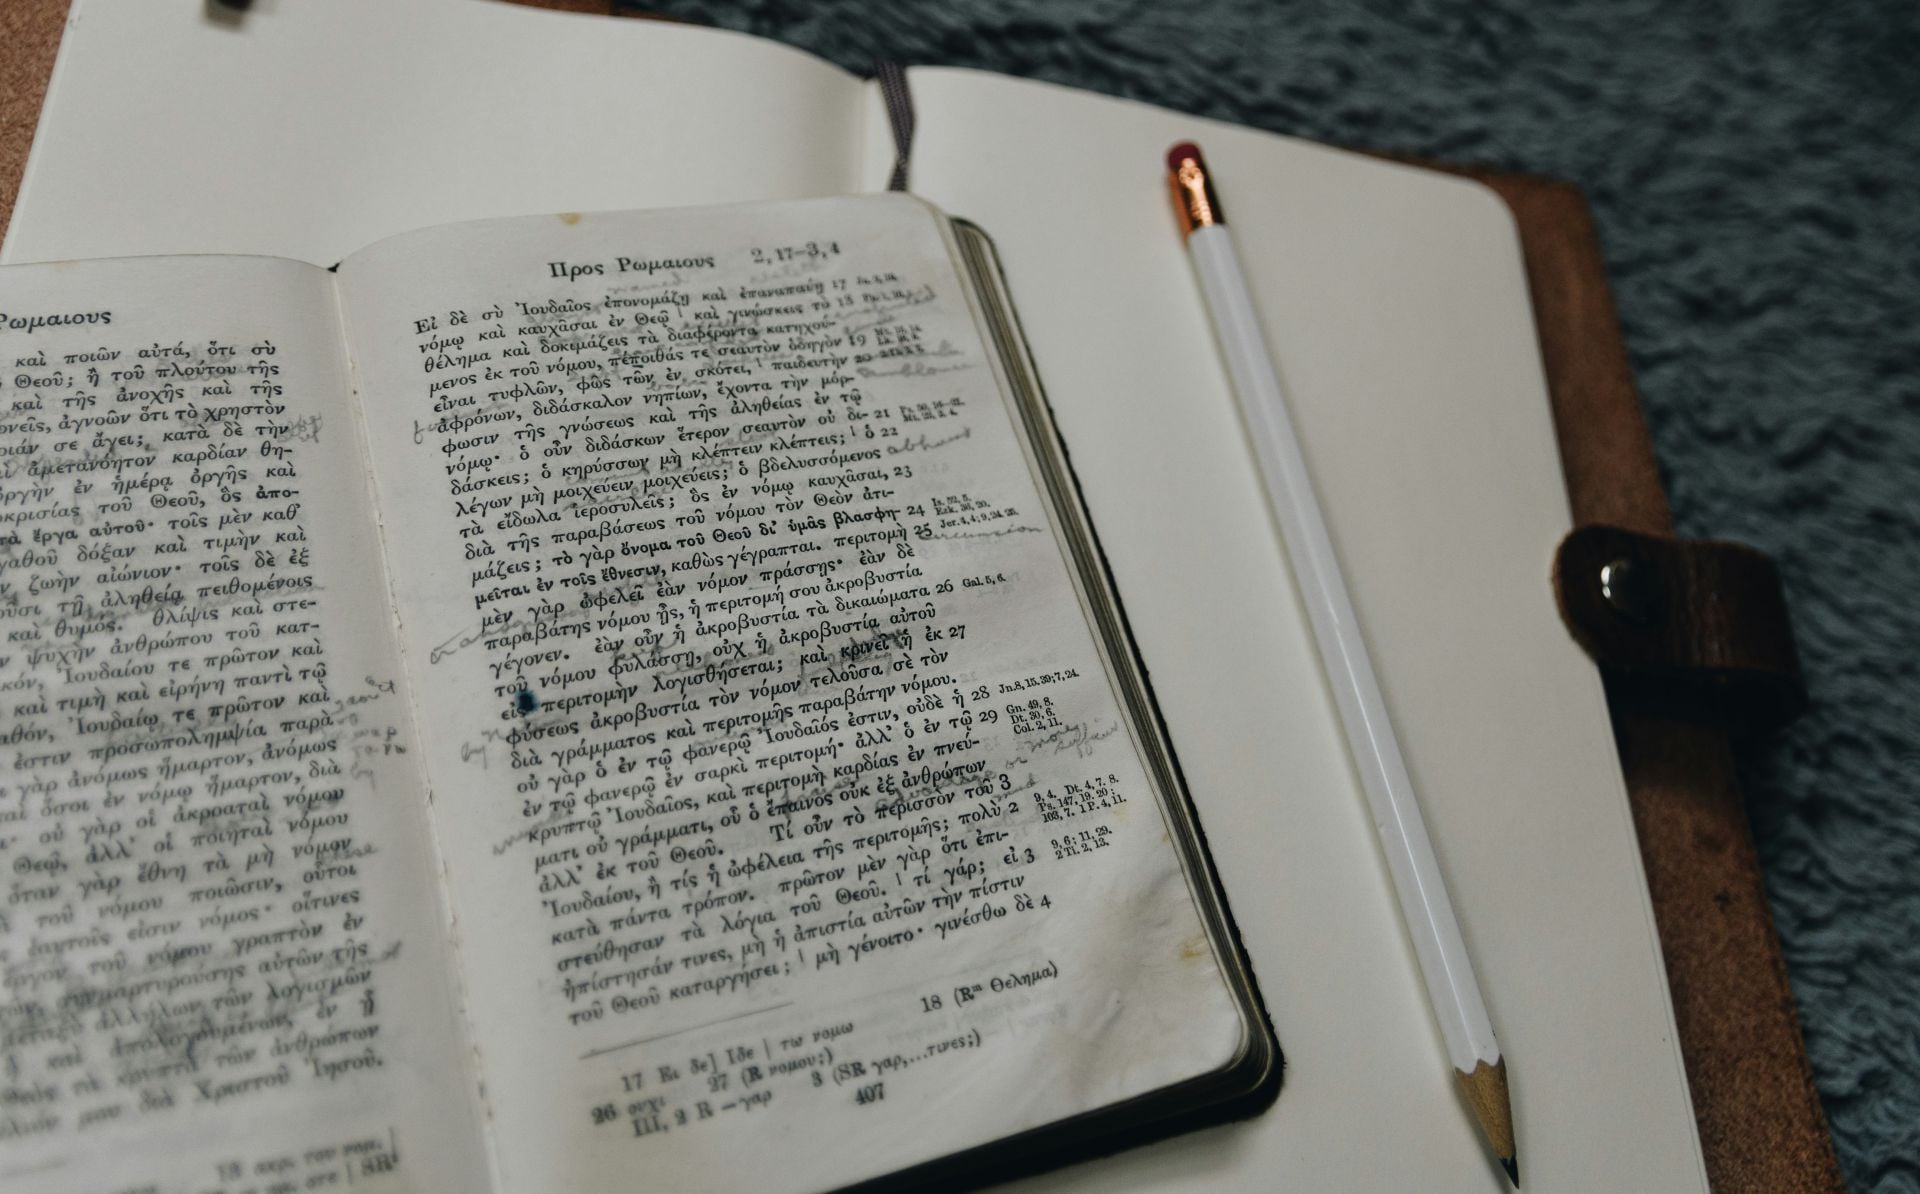 Ρωμαιους
καὶ ποιῶν αὐτά, ὅτι σὺ
Θεοῦ; ἢ τοῦ πλούτου τῆς
καὶ τῆς ἀνοχῆς καὶ τῆς
ἀγνοῶν ὅτι τὸ χρηστὸν
σε ἄγει; κατὰ δὲ τὴν
ἀμετανόητον καρδίαν θη-
ἐν ἡμέρᾳ ὀργῆς καὶ
τοῦ Θεοῦ, ὃς ἀπο-
ἔργα αὐτοῦ· τοῖς μὲν καθ’
δόξαν καὶ τιμὴν καὶ
ζωὴν αἰώνιον· τοῖς δὲ ἐξ
τῇ ἀληθείᾳ πειθομένοις
καὶ θυμός. θλίψις καὶ στε-
ψυχὴν ἀνθρώπου τοῦ κατ-
Ἰουδαίου τε πρῶτον καὶ
καὶ τιμὴ καὶ εἰρήνη παντὶ τῷ
Ἰουδαίῳ τε πρῶτον καὶ
ἐστιν προσωπολημψία παρὰ
γὰρ ἀνόμως ἥμαρτον, ἀνόμως
ὅσοι ἐν νόμῳ ἥμαρτον, διὰ
οὐ γὰρ οἱ ἀκροαταὶ νόμου
Θεῷ, ἀλλ’ οἱ ποιηταὶ νόμου
ὅταν γὰρ ἔθνη τὰ μὴ νόμον
τοῦ νόμου ποιῶσιν, οὗτοι
ἑαυτοῖς εἰσιν νόμος· οἵτινες
τοῦ νόμου γραπτὸν ἐν
συμμαρτυρούσης αὐτῶν τῆς
ἀλλήλων τῶν λογισμῶν
καὶ ἀπολογουμένων, ἐν ᾗ
τὰ κρυπτὰ τῶν ἀνθρώπων
μου διὰ Χριστοῦ Ἰησοῦ.
Προς Ρωμαιους 2, 17–3, 4
Εἰ δὲ σὺ Ἰουδαῖος ἐπονομάζῃ καὶ ἐπαναπαύῃ 17
νόμῳ καὶ καυχᾶσαι ἐν Θεῷ | καὶ γινώσκεις τὸ 18
θέλημα καὶ δοκιμάζεις τὰ διαφέροντα κατηχού-
μενος ἐκ τοῦ νόμου, πέποιθάς τε σεαυτὸν ὁδηγὸν 19
εἶναι τυφλῶν, φῶς τῶν ἐν σκότει, | παιδευτὴν 20
ἀφρόνων, διδάσκαλον νηπίων, ἔχοντα τὴν μόρ-
φωσιν τῆς γνώσεως καὶ τῆς ἀληθείας ἐν τῷ
νόμῳ· ὁ οὖν διδάσκων ἕτερον σεαυτὸν οὐ δι- 21
δάσκεις; ὁ κηρύσσων μὴ κλέπτειν κλέπτεις; | ὁ 22
λέγων μὴ μοιχεύειν μοιχεύεις; ὁ βδελυσσόμενος abhors
τὰ εἴδωλα ἱεροσυλεῖς; ὃς ἐν νόμῳ καυχᾶσαι, 23
διὰ τῆς παραβάσεως τοῦ νόμου τὸν Θεὸν ἀτι-
μάζεις; τὸ γὰρ ὄνομα τοῦ Θεοῦ δι’ ὑμᾶς βλασφη- 24 Is. 52, 5. Ezk. 36, 20.
μεῖται ἐν τοῖς ἔθνεσιν, καθὼς γέγραπται. περιτομὴ 25 Jer. 4, 4; 9, 24. 25.
μὲν γὰρ ὠφελεῖ ἐὰν νόμον πράσσῃς· ἐὰν δὲ
παραβάτης νόμου ᾖς, ἡ περιτομή σου ἀκροβυστία
γέγονεν. ἐὰν οὖν ἡ ἀκροβυστία τὰ δικαιώματα 26 Gal. 5, 6.
τοῦ νόμου φυλάσσῃ, οὐχ ἡ ἀκροβυστία αὐτοῦ
εἰς περιτομὴν λογισθήσεται; καὶ κρινεῖ ἡ ἐκ 27
φύσεως ἀκροβυστία τὸν νόμον τελοῦσα σὲ τὸν
διὰ γράμματος καὶ περιτομῆς παραβάτην νόμου.
οὐ γὰρ ὁ ἐν τῷ φανερῷ Ἰουδαῖός ἐστιν, οὐδὲ ἡ 28 Jn. 8, 15. 39; 7, 24.
ἐν τῷ φανερῷ ἐν σαρκὶ περιτομή· ἀλλ’ ὁ ἐν τῷ 29 Gn. 49, 8. Dt. 30, 6. Col. 2, 11.
κρυπτῷ Ἰουδαῖος, καὶ περιτομὴ καρδίας ἐν πνεύ-
ματι οὐ γράμματι, οὗ ὁ ἔπαινος οὐκ ἐξ ἀνθρώπων
ἀλλ’ ἐκ τοῦ Θεοῦ. Τί οὖν τὸ περισσὸν τοῦ 3
Ἰουδαίου, ἢ τίς ἡ ὠφέλεια τῆς περιτομῆς; πολὺ 2 9, 4. Dt. 4, 7. 8. Ps. 147, 19. 20; 103, 7. 1 P. 4, 11.
κατὰ πάντα τρόπον. πρῶτον μὲν γὰρ ὅτι ἐπι-
στεύθησαν τὰ λόγια τοῦ Θεοῦ. | τί γάρ; εἰ 3 9, 6; 11, 29. 2 Ti. 2, 13.
ἠπίστησάν τινες, μὴ ἡ ἀπιστία αὐτῶν τὴν πίστιν
τοῦ Θεοῦ καταργήσει; | μὴ γένοιτο· γινέσθω δὲ 4
17 Ει δε] Ιδε | τω νομω 18 (Rᵐ Θελημα)
26 ουχι 27 (R νομου;)
III, 2 R –γαρ 3 (SR γαρ,…τινες;)
407